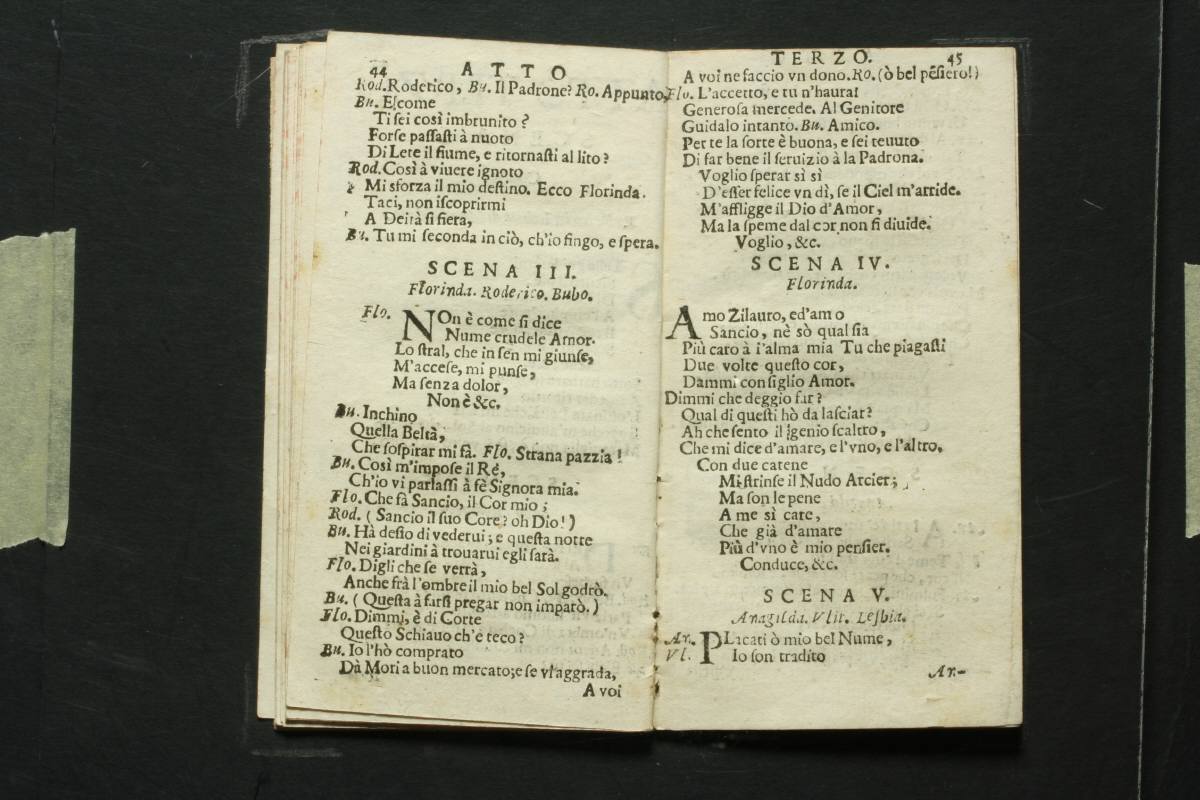 44 ATTO
Rod. Roderico, Bu. Il Padrone? Ro. Appunto,
Bu. E come
Ti sei così imbrunito?
Forse passasti à nuoto
Di Lete il fiume, e ritornasti al lito?
Rod. Così à viuere ignoto
Mi sforza il mio destino. Ecco Florinda.
Taci, non iscoprirmi
A Deità sì fiera,
Bu. Tu mi seconda in ciò, ch'io fingo, e spera.
SCENA III.
Florinda. Roderico. Bubo.
Flo. NOn è come si dice
Nume crudele Amor.
Lo stral, che in sen mi giunse,
M'accese, mi punse,
Ma senza dolor,
Non è &c.
Bu. Inchino
Quella Beltà,
Che sospirar mi fà. Flo. Strana pazzia!
Bu. Così m'impose il Rè,
Ch'io vi parlassi à fè Signora mia.
Flo. Che fà Sancio, il Cor mio;
Rod. (Sancio il suo Core? oh Dio!)
Bu. Hà desio di vederui; e questa notte
Nei giardini à trouarui egli sarà.
Flo. Digli che se verrà,
Anche frà l'ombre il mio bel Sol godrò.
Bu. (Questa à farsi pregar non imparò.)
Flo. Dimmi, è di Corte
Questo Schiauo ch'è teco?
Bu. Io l'hò comprato
Dà Mori a buon mercato; e se v'aggrada,
A voi
TERZO. 45
A voi ne faccio vn dono. Ro. (ò bel pẽsiero!)
Flo. L'accetto, e tu n'haurai
Generosa mercede. Al Genitore
Guidalo intanto. Bu. Amico.
Per te la sorte è buona, e sei tenuto
Di far bene il seruizio à la Padrona.
Voglio sperar sì sì
D'esser felice vn dì, se il Ciel m'arride.
M'affligge il Dio d'Amor,
Ma la speme dal cor non si diuide.
Voglio, &c.
SCENA IV.
Florinda.
Amo Zilauro, ed'amo
Sancio, nè sò qual sia
Più caro à l'alma mia Tu che piagasti
Due volte questo cor,
Dammi consiglio Amor.
Dimmi che deggio far?
Qual di questi hò da lasciar?
Ah che sento il genio scaltro,
Che mi dice d'amare, e l'vno, e l'altro.
Con due catene
Mi strinse il Nudo Arcier;
Ma son le pene
A me sì care,
Che già d'amare
Più d'vno è mio pensier.
Con due, &c.
SCENA V.
Anagilda. Vlit. Lesbia.
An. PLacati ò mio bel Nume,
Vl. Io son tradito
An-